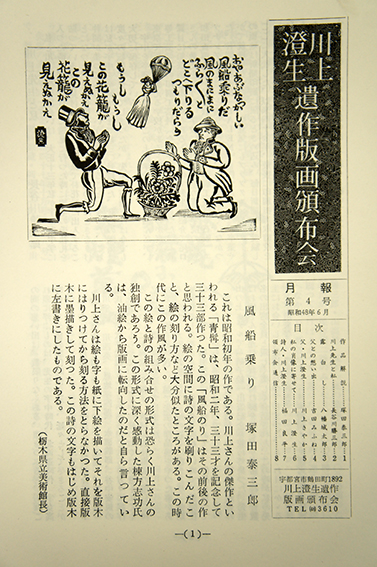 川上
澄生
遺作版画頒布会
月報
第4号
昭和48年6月
目次
作品解説 塚田泰三郎 1
川上先生と私 長谷川勝三郎 2
父の思い出 吉田みふね 4
父・川上澄生 川上
私の肖像に寄せて 川上澄生
詩人・川上澄生 福田
頒布会通信 8
宇都宮市鶴田町1892
川上澄生遺作
版画頒布会
TEL 3610
風のまにまに
ふらくと
どこへ下りる
つもりだらう
もうし もうし
この花籠が
見えぬかえ
この
花籠が
見えぬかえ
風船乗り 塚田泰三郎
これは昭和初年の作である。川上さんの傑作とい
われる「青髯」は、昭和二年、三十三才を記念して
三十三部作つた。この「風船のり」はその前後の作
と思われる。絵の空間に詩の文字を刷りこんだこ
と、絵の刻り方など大分似たところがある。この時
代にこの作風が多い。
この絵と詩の組み合せの形式は恐らく川上さんの
独創であろう。この形式に深く感動した棟方志功氏
は、油絵から版画に転向したのだと自ら言つてい
る。
川上さんは絵も字も紙に下絵を描いてそれを版木
にはりつけてから刻る方法をとらなかつた。直接版
木に墨描きして刻つた。この詩の文字もはじめ版木
に左書きにしたものである。
(栃木県立美術館長)
―(1)―